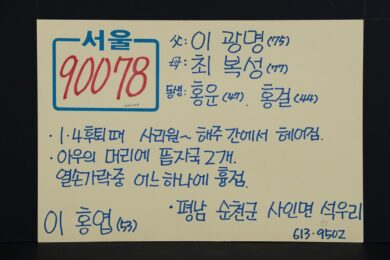 서울
90078
父: 이 광명 (75)
母: 최 복성 (77)
동생: 홍운 (47). 홍걸 (44)
· 1·4후퇴때 사리원~해주 간에서 헤어짐.
· 아우의 머리에 뜸자국 2개.
열손가락중 어느하나에 흉점.
이 홍엽 (53)
· 평남 순천군 사인면 석우리
613-9502